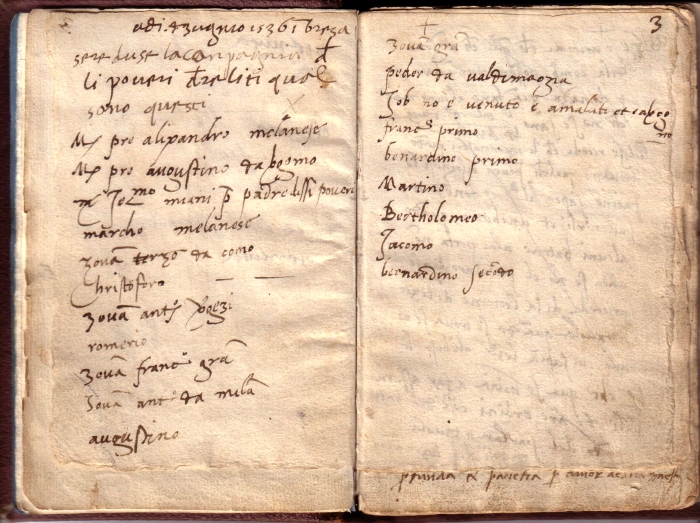 adi. 4 zugnio 1536 i bresa
se redusse la conpagnia d
li poveri dreliti qual
sono questi
Mr pre alixandro melanese
Mr pre augustino da bgomo
mr Jermo miani p padre dlli poveri
marcho melanese
zovā terzo da como
Christoforo
zovā antº
romerio
zovā francº grā
zovā antº da milā
augustino
3
zovā grā
peder da valdimagna
Job nō è venuto è amalati et
francº primo
benardino primo
Martino
Bertholomeo
Jacomo
benardino secōdo
p amor